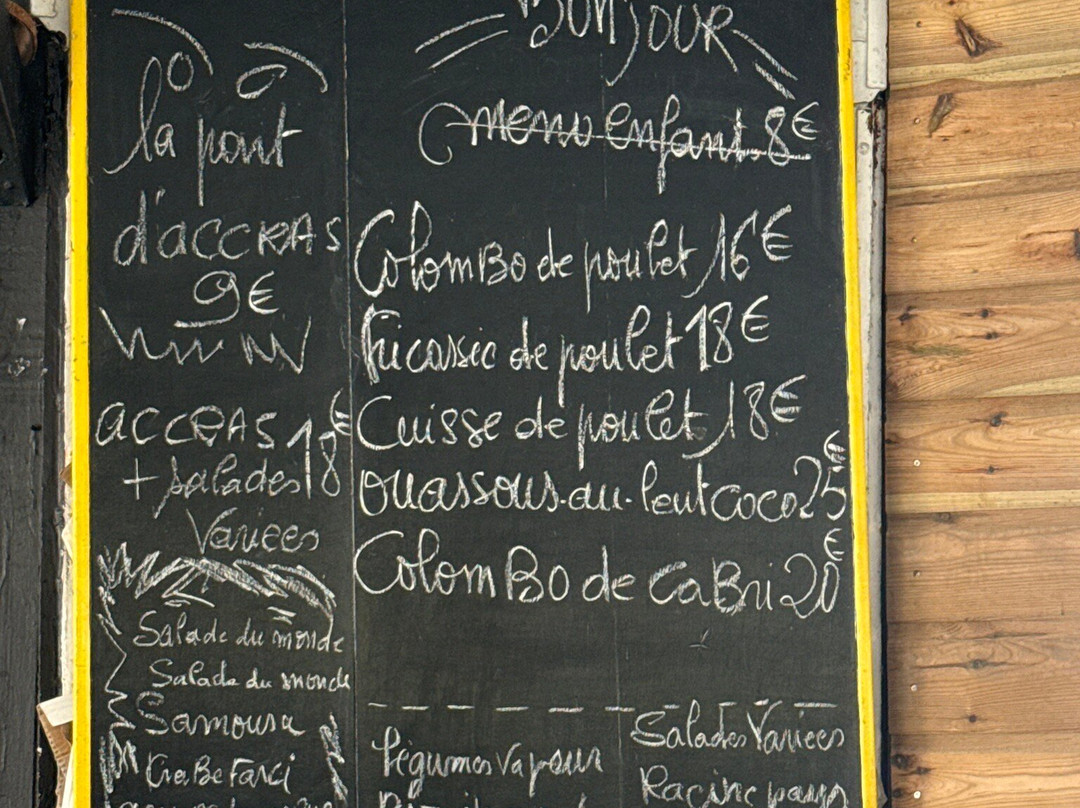 la part
d'accras
9€
accras 18€
+ salades
Variées
Salade du monde
Salade du monde
Samoussa
Crabe Farci
BONJOUR
menu enfant. 8€
Colombo de poulet 16€
Fricassée de poulet 18€
Cuisse de poulet 18€
ouassous. au. lait coco 25€
Colombo de caBri 20€
Légumes Vapeur
Salades Variées
Racine pays